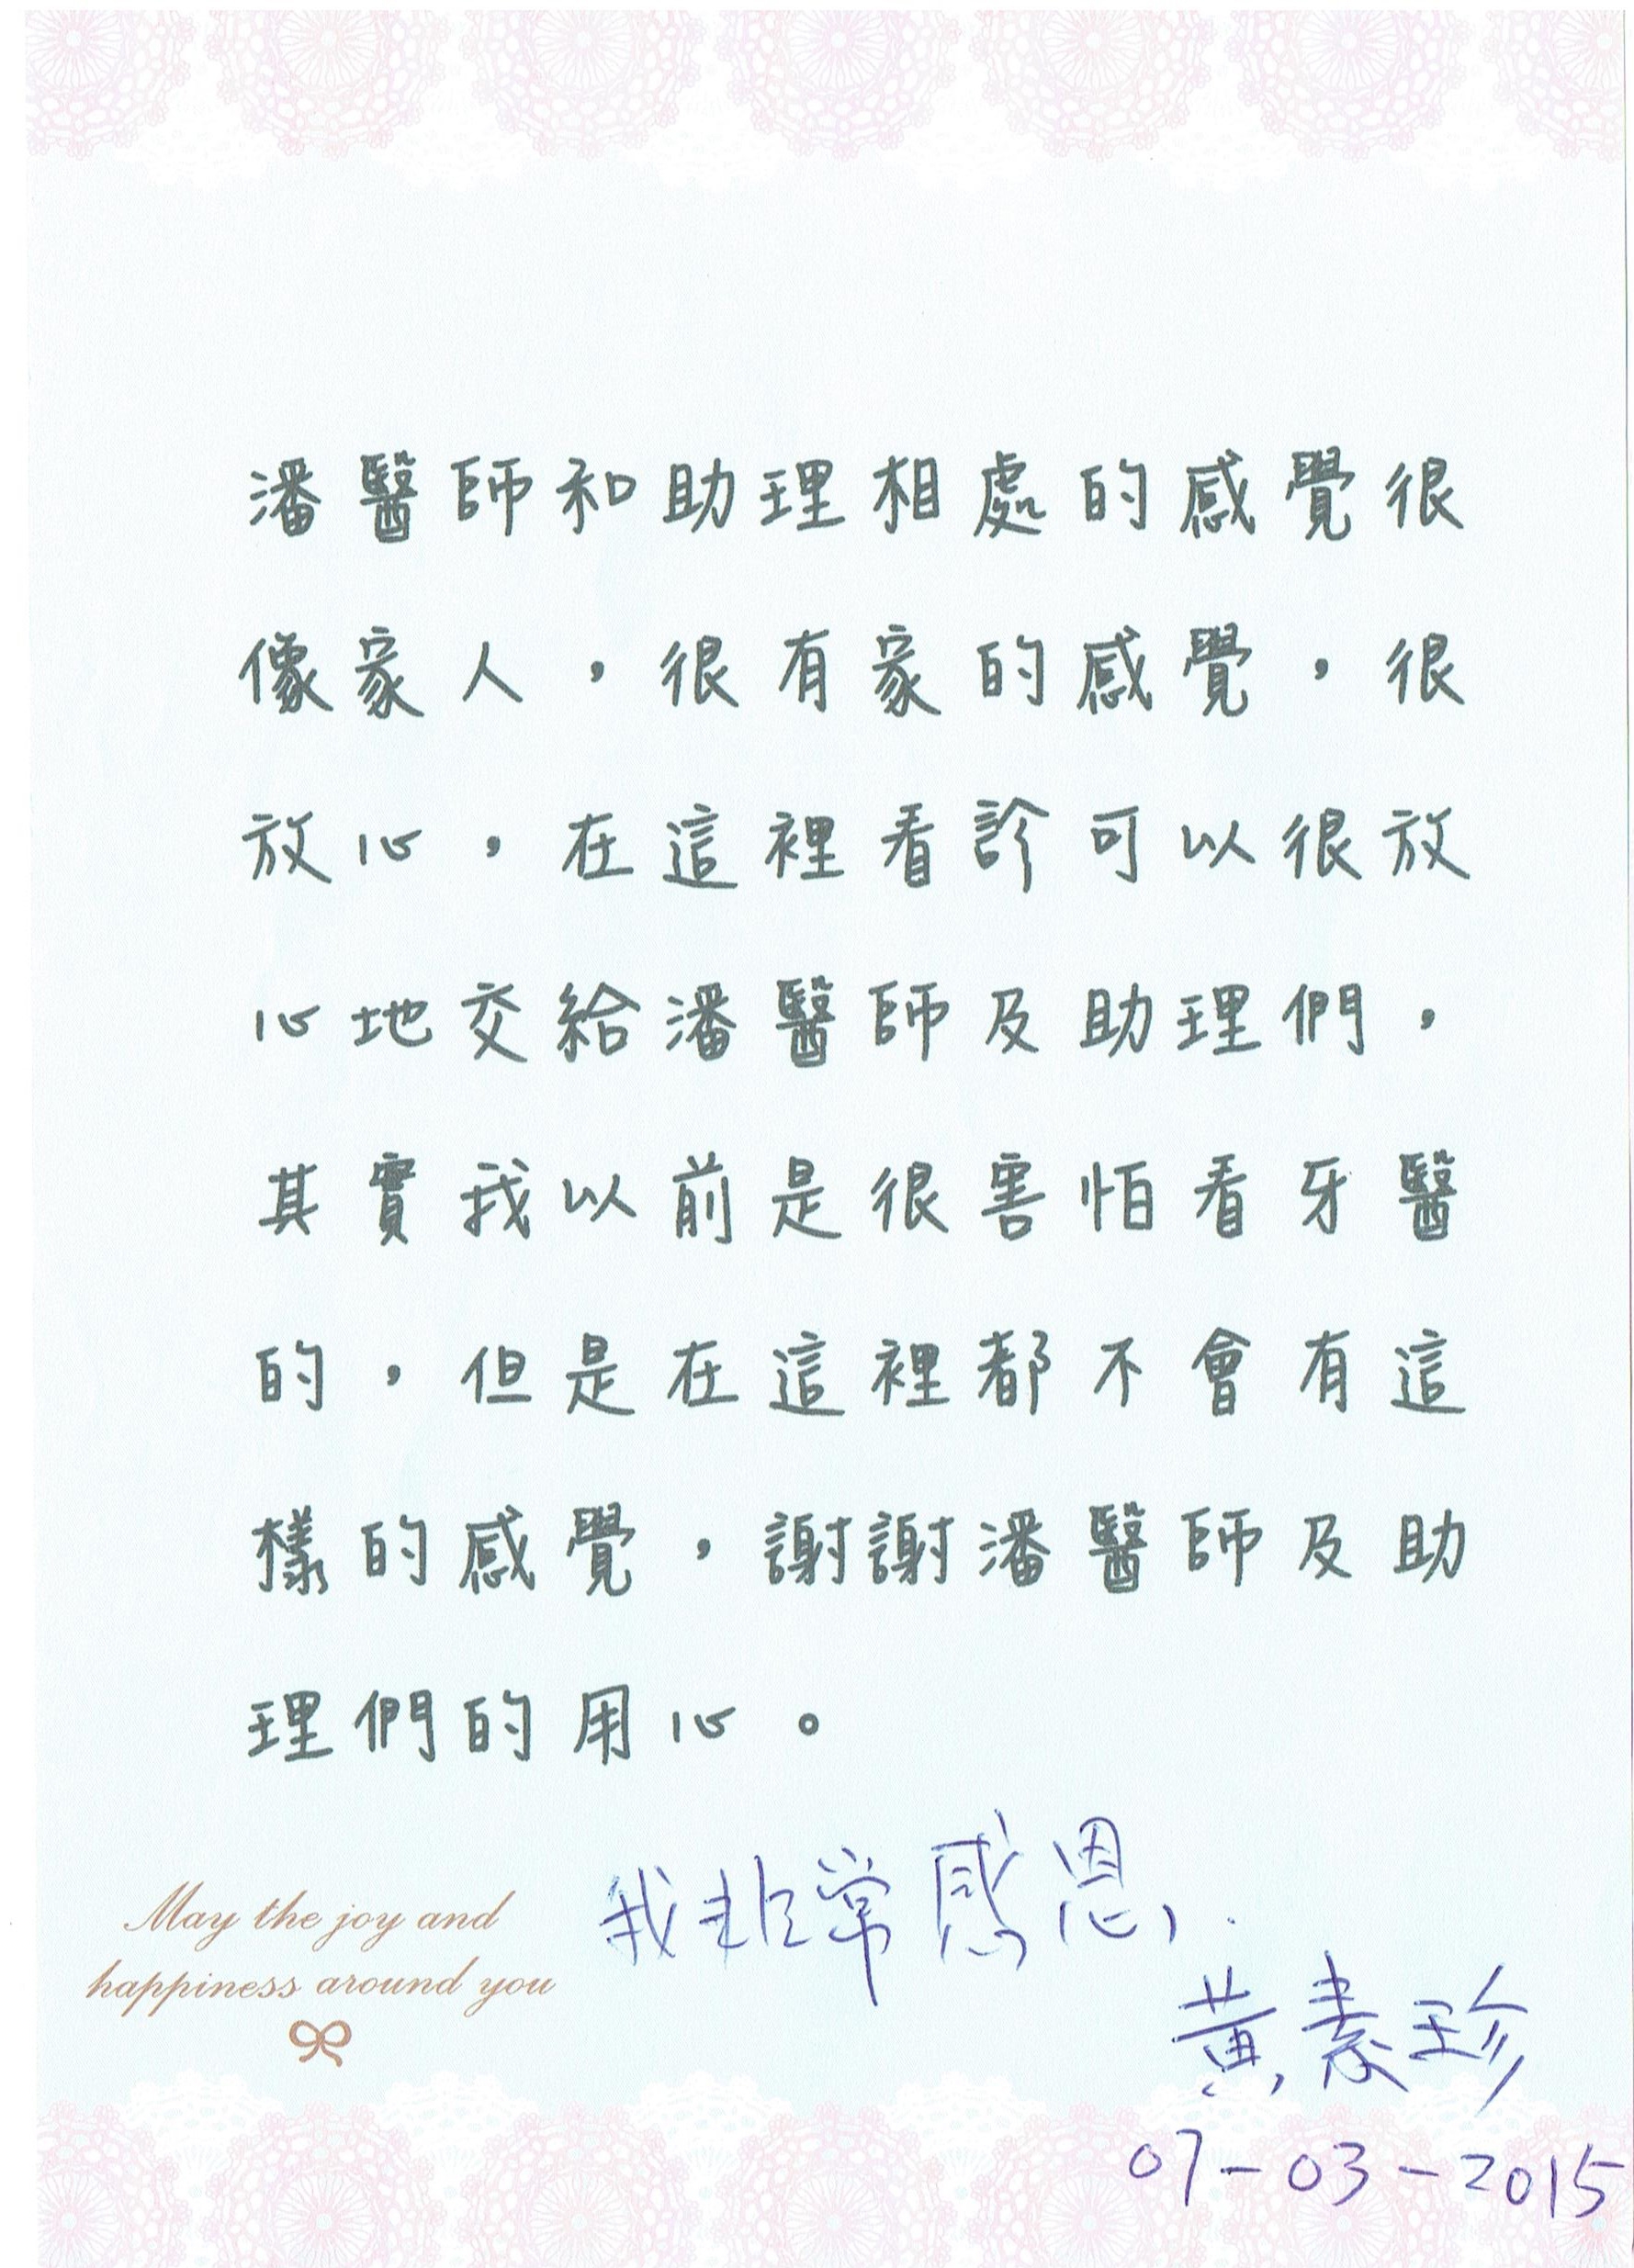 潘醫師和助理相處的感覺很
像家人，很有家的感覺，很
放心，在這裡看診可以很放
心地交給潘醫師及助理們，
其實我以前是很害怕看牙醫
的，但是在這裡都不會有這
樣的感覺，謝謝潘醫師及助
理們的用心。
我非常感恩.
May the joy and
happiness around you
黃素珍
07-03-2015